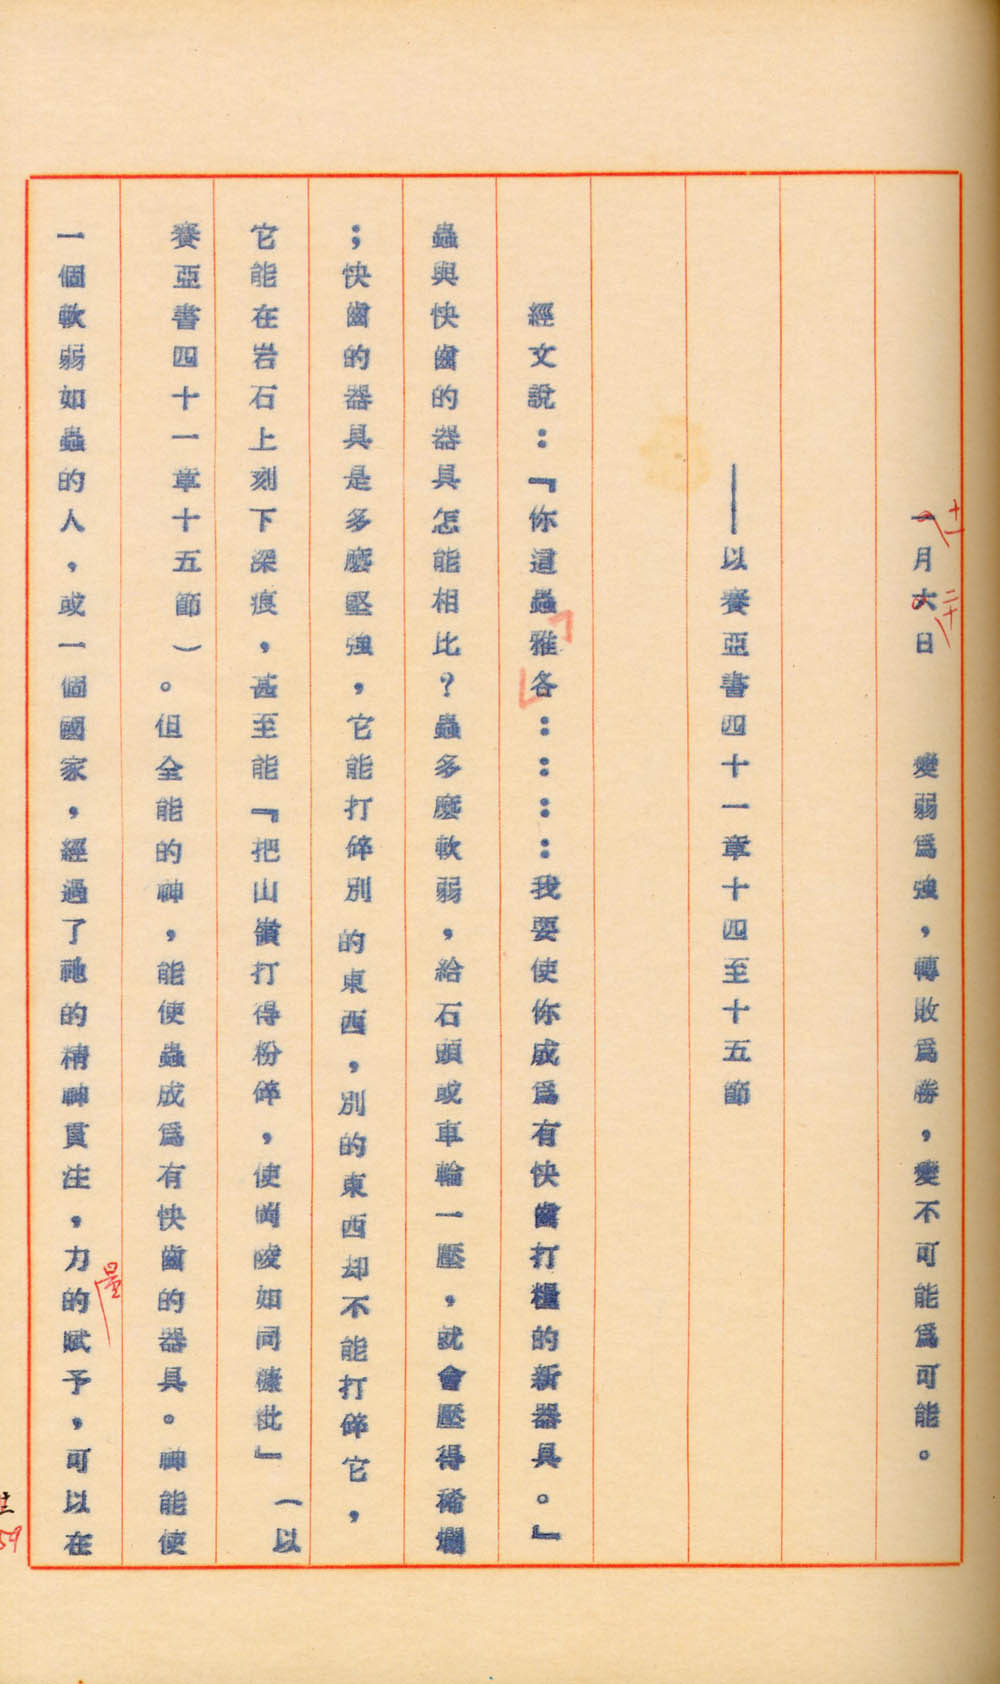 一月六日　變弱爲強，轉敗爲勝，變不可能爲可能。
十一
二十
——以賽亞書四十一章十四至十五節
經文說：『你這蟲雅各：：：：我要使你成爲有快齒打糧的新器具。』
蟲與快齒的器具怎能相比？蟲多麼軟弱，給石頭或車輪一壓，就會壓得稀爛
；快齒的器具是多麼堅強，它能打碎別的東西，別的東西却不能打碎它，
它能在岩石上刻下深痕，甚至能『把山嶺打得粉碎，使岡陵如同糠秕』（以
賽亞書四十一章十五節）。但全能的神，能使蟲成爲有快齒的器具。神能使
一個軟弱如蟲的人，或一個國家，經過了祂的精神貫注，力的賦予，可以在
量
59